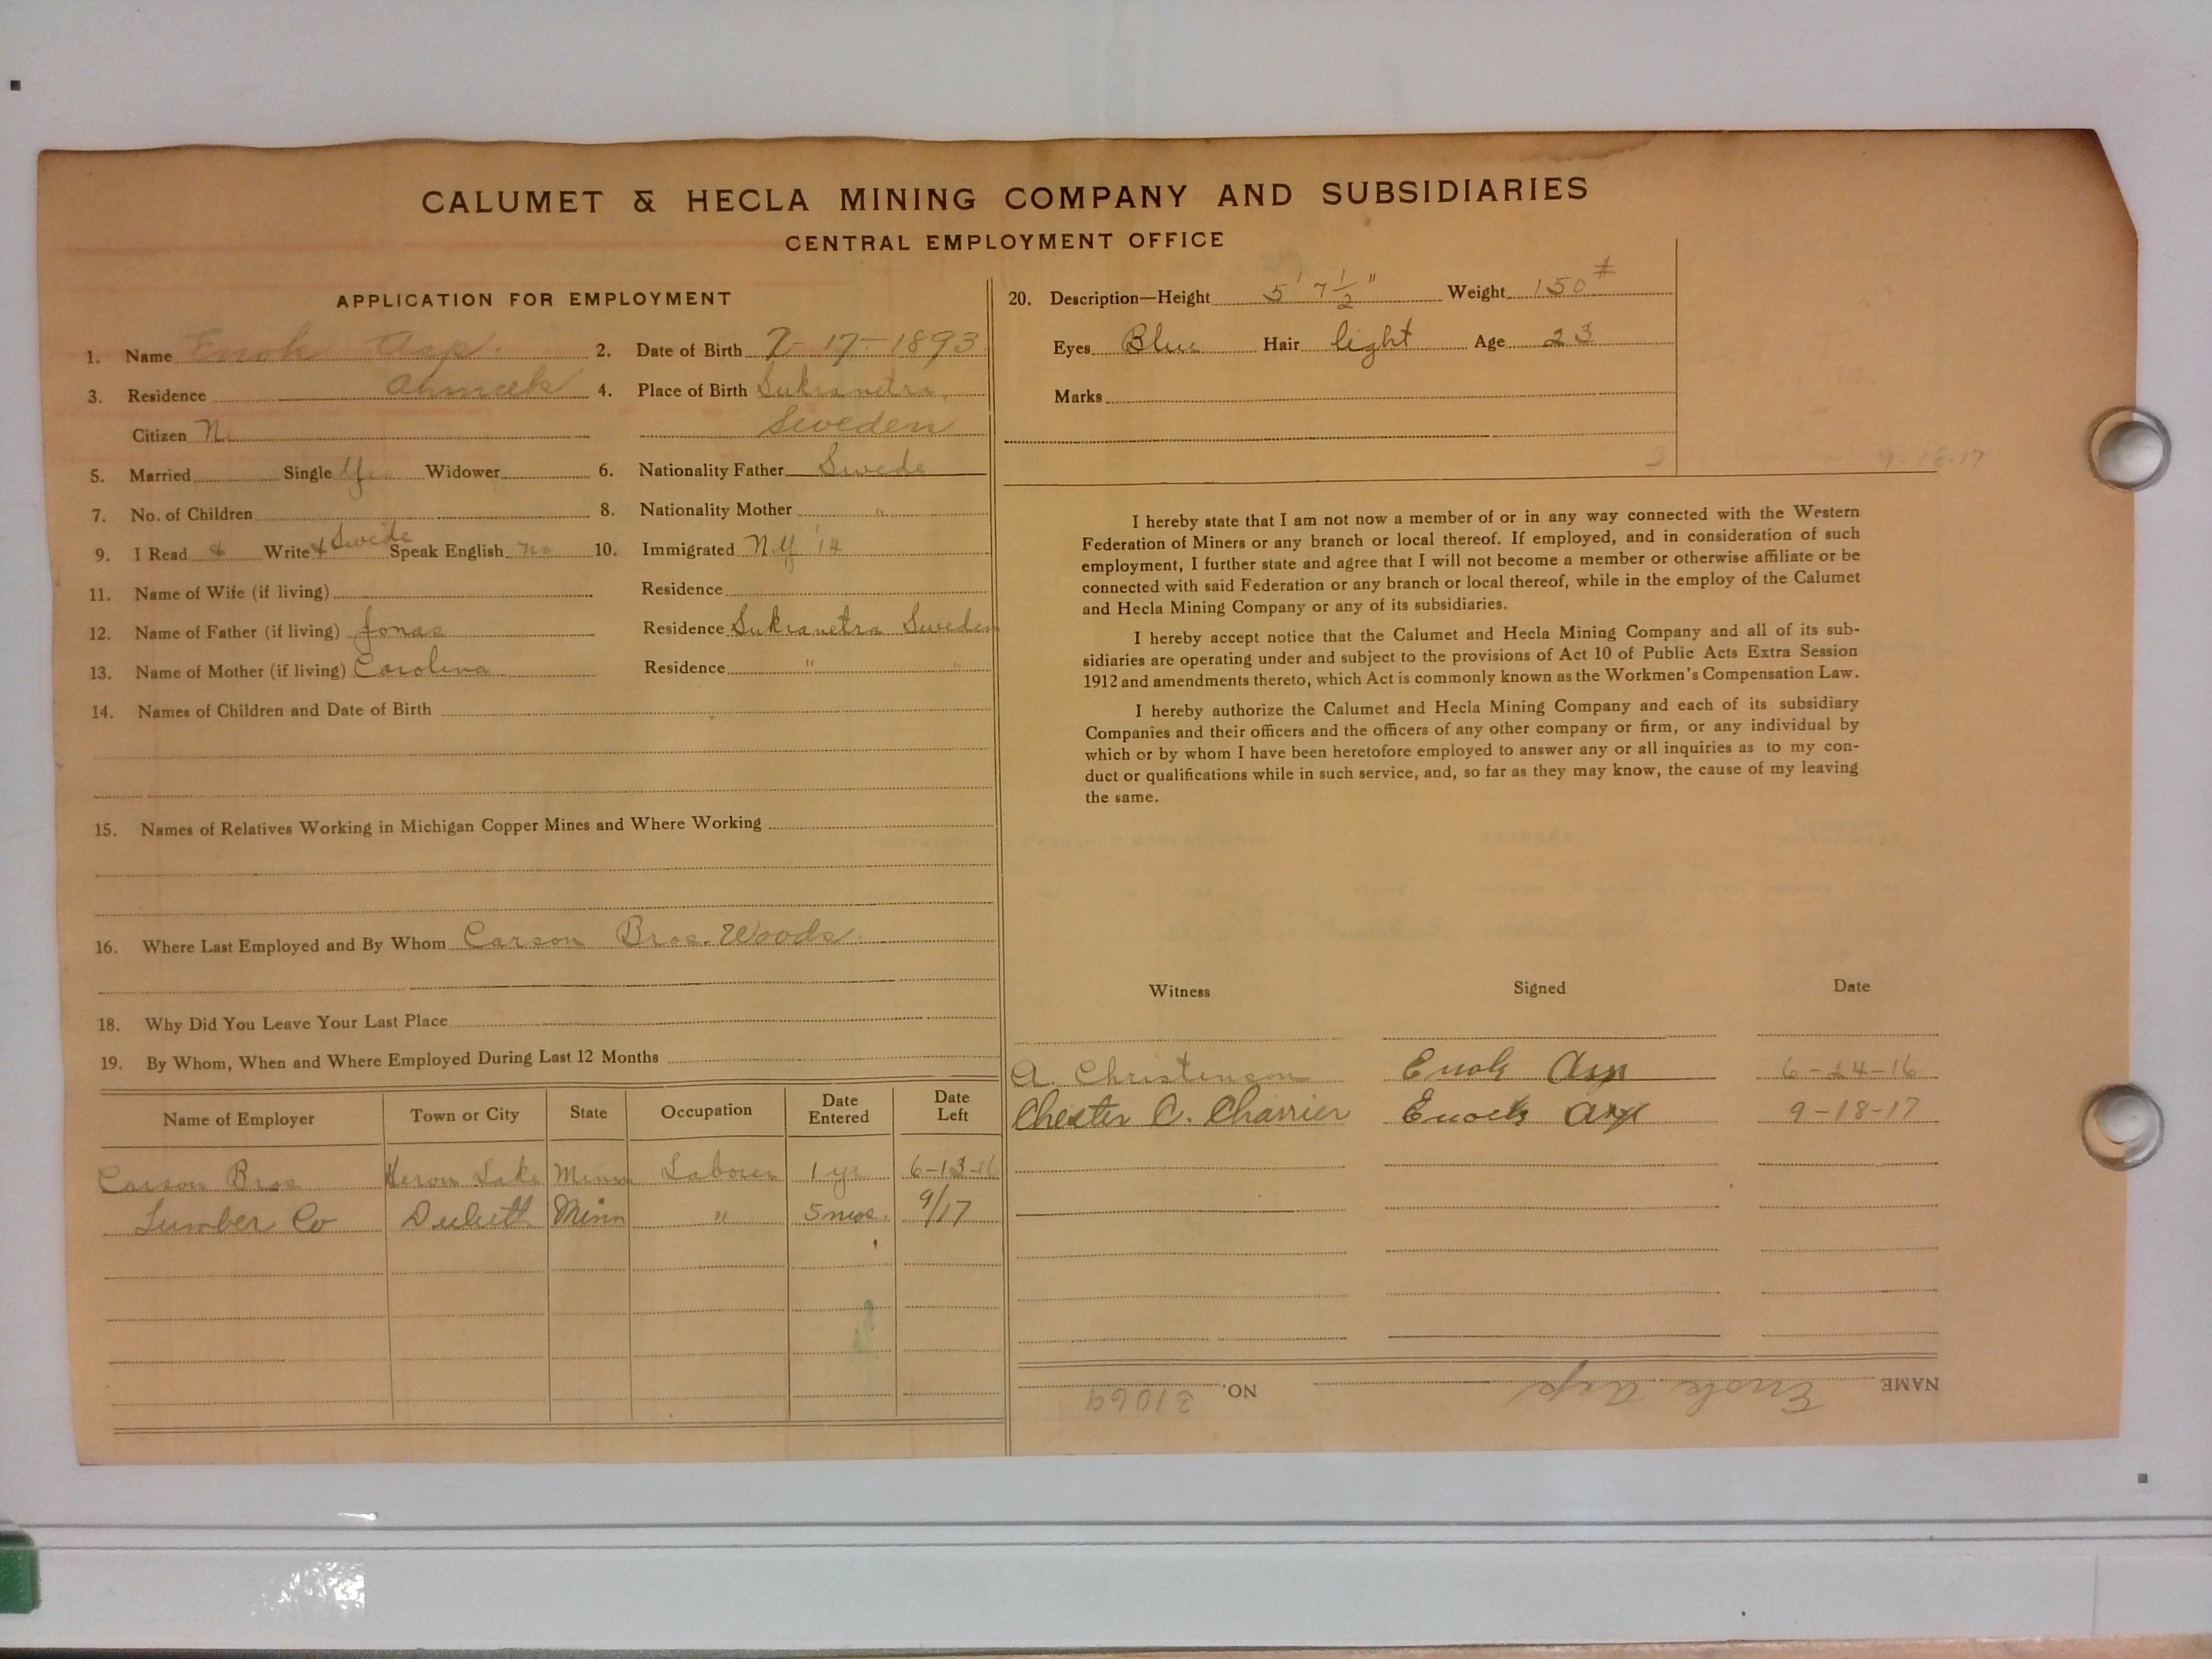 CALUMET & HECLA MINING COMPANY AND SUBSIDIARIES
CENTRAL EMPLOYMENT OFFICE
APPLICATION FOR EMPLOYMENT
1. Name Enok Asp. 2. Date of Birth 7-17-1893
3. Residence Ahmeek 4. Place of Birth
Citizen N. Sweden
5. Married Single Yes Widower 6. Nationality Father Swede
7. No. of Children 8. Nationality Mother "
9. I Read & Write & Swede Speak English no 10. Immigrated N.Y '14
11. Name of Wife (if living) Residence
12. Name of Father (if living) Jonas Residence Sweden
13. Name of Mother (if living) Carolina Residence " "
14. Names of Children and Date of Birth
15. Names of Relatives Working in Michigan Copper Mines and Where Working
16. Where Last Employed and By Whom Carson Bros. Woods.
18. Why Did You Leave Your Last Place
19. By Whom, When and Where Employed During Last 12 Months
Name of Employer Town or City State Occupation Date Entered Date Left
Carson Bros Heron Lake Minn Laborer 1 yr 6-13-16
Lumber Co Duluth Minn " 5 mos. 9/17
20. Description—Height 5' 7 1/2" Weight 150#
Eyes Blue Hair light Age 23
Marks
3
9-18-17
I hereby state that I am not now a member of or in any way connected with the Western
Federation of Miners or any branch or local thereof. If employed, and in consideration of such
employment, I further state and agree that I will not become a member or otherwise affiliate or be
connected with said Federation or any branch or local thereof, while in the employ of the Calumet
and Hecla Mining Company or any of its subsidiaries.
I hereby accept notice that the Calumet and Hecla Mining Company and all of its sub-
sidiaries are operating under and subject to the provisions of Act 10 of Public Acts Extra Session
1912 and amendments thereto, which Act is commonly known as the Workmen's Compensation Law.
I hereby authorize the Calumet and Hecla Mining Company and each of its subsidiary
Companies and their officers and the officers of any other company or firm, or any individual by
which or by whom I have been heretofore employed to answer any or all inquiries as to my con-
duct or qualifications while in such service, and, so far as they may know, the cause of my leaving
the same.
Witness Signed Date
A. Christenson Enok Asp 6-24-16
Chester C. Charrier Enock Asp 9-18-17
NAME Enok Asp NO. 31064